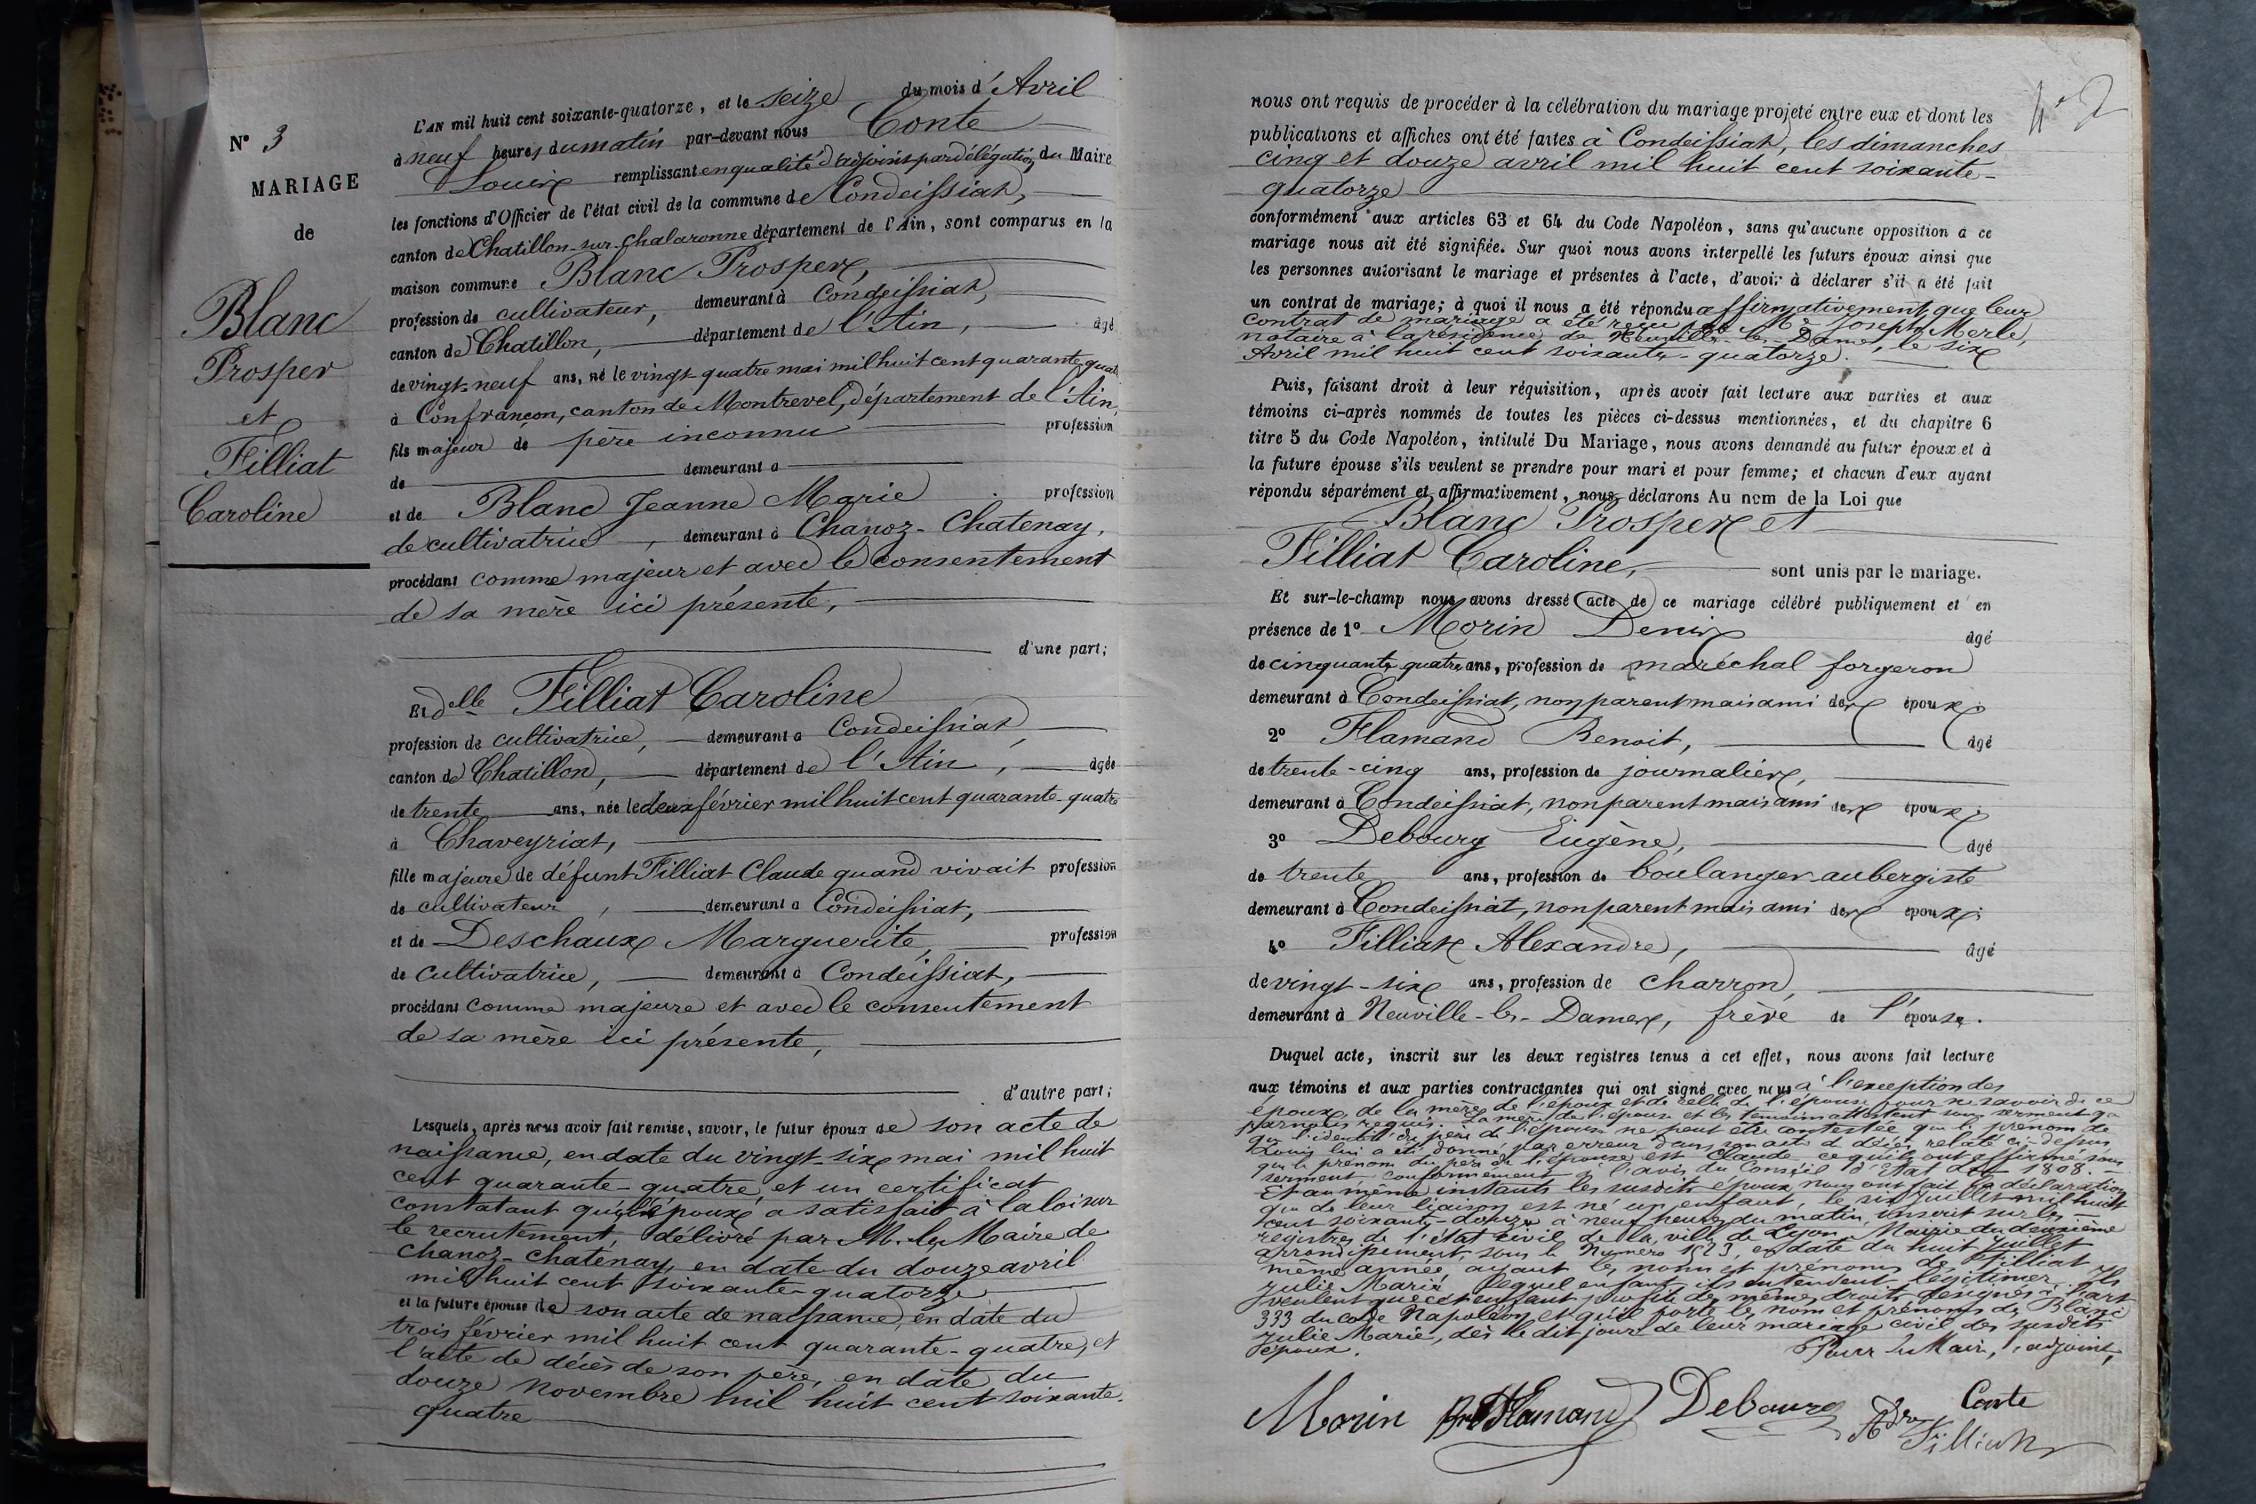 N° 3
MARIAGE
de
Blanc
Prosper
et
Filliat
Caroline
L'AN mil huit cent soixante-quatorze, et le seize du mois d'Avril
à neuf heures du matin par-devant nous Conte
Louis remplissant en qualité d'adjoint par délégation du Maire
les fonctions d'Officier de l'état civil de la commune de Condeissiat,
canton de Chatillon-sur-Chalaronne département de l'Ain, sont comparus en la
maison commune Blanc Prosper,
profession de cultivateur, demeurant à Condeissiat,
canton de Chatillon, département de l'Ain, âgé
de vingt-neuf ans, né le vingt-quatre mai mil huit cent quarante quatre
à Confrançon, canton de Montrevel, département de l'Ain,
fils majeur de père inconnu profession
de demeurant à
et de Blanc Jeanne Marie profession
de cultivatrice, demeurant à Chanoz-Chatenay,
procédant comme majeur et avec le consentement
de sa mère ici présente,
d'une part;
Et delle Filliat Caroline
profession de cultivatrice, demeurant à Condeissiat,
canton de Chatillon, département de l'Ain, âgée
de trente ans, née le deux février mil huit cent quarante-quatre
à Chaveyriat,
fille majeure de défunt Filliat Claude quand vivait profession
de cultivateur, demeurant à Condeissiat,
et de Deschaux Marguerite, profession
de cultivatrice, demeurant à Condeissiat,
procédant comme majeure et avec le consentement
de sa mère ici présente,
d'autre part;
Lesquels, après nous avoir fait remise, savoir, le futur époux de son acte de
naissance, en date du vingt-six mai mil huit
cent quarante-quatre, et un certificat
constatant que l'époux a satisfait à la loi sur
le recrutement, délivré par M. le Maire de
Chanoz-Chatenay, en date du douze avril
mil huit cent soixante-quatorze
et la future épouse de son acte de naissance, en date du
trois février mil huit cent quarante-quatre, et
l'acte de décès de son père, en date du
douze novembre mil huit cent soixante-
quatre
nous ont requis de procéder à la célébration du mariage projeté entre eux et dont les
publications et affiches ont été faites à Condeissiat, les dimanches
cinq et douze avril mil huit cent soixante-
quatorze
conformément aux articles 63 et 64 du Code Napoléon, sans qu'aucune opposition à ce
mariage nous ait été signifiée. Sur quoi nous avons interpellé les futurs époux ainsi que
les personnes autorisant le mariage et présentes à l'acte, d'avoir à déclarer s'il a été fait
un contrat de mariage; à quoi il nous a été répondu affirmativement que leur
contrat de mariage a été reçu par Me Joseph Merle,
notaire à la résidence de Neuville-les-Dames, le six
Avril mil huit cent soixante-quatorze.
Puis, faisant droit à leur réquisition, après avoir fait lecture aux parties et aux
témoins ci-après nommés de toutes les pièces ci-dessus mentionnées, et du chapitre 6
titre 5 du Code Napoléon, intitulé Du Mariage, nous avons demandé au futur époux et à
la future épouse s'ils veulent se prendre pour mari et pour femme; et chacun d'eux ayant
répondu séparément et affirmativement, nous déclarons Au nom de la Loi que
Blanc Prosper et
Filliat Caroline, sont unis par le mariage.
Et sur-le-champ nous avons dressé acte de ce mariage célébré publiquement et en
présence de 1° Morin Denis âgé
de cinquante quatre ans, profession de maréchal forgeron
demeurant à Condeissiat, non parent mais ami des époux;
2° Flamand Benoit, âgé
de trente-cinq ans, profession de journalier,
demeurant à Condeissiat, non parent mais ami des époux;
3° Debourg Eugène, âgé
de trente ans, profession de boulanger-aubergiste
demeurant à Condeissiat, non parent mais ami des époux;
4° Filliat Alexandre, âgé
de vingt-six ans, profession de charron,
demeurant à Neuville-les-Dames, frère de l'épouse.
Duquel acte, inscrit sur les deux registres tenus à cet effet, nous avons fait lecture
aux témoins et aux parties contractantes qui ont signé avec nous à l'exception des
époux, de la mère de l'époux et de celle de l'épouse pour ne savoir de ce
par nous requis. La mère de l'épouse et les témoins attestent sous serment que
l'identité du père de l'épouse ne peut être contestée que le prénom de
Louis lui a été donné par erreur dans son acte de décès relaté ci-dessus
que le prénom du père de l'épouse est Claude, ce qu'ils ont affirmé sous
serment conformément à l'avis du Conseil d'Etat de 1808.
Et au même instant les susdits époux nous ont fait la déclaration
que de leur liaison est né un enfant, le six juillet mil huit
cent soixante-douze à neuf heures du matin, inscrit sur les
registres de l'état civil de la ville de Lyon Mairie du deuxième
arrondissement, sous le Numéro 1523, en date du huit juillet
même année, ayant les noms et prénoms de Filliat
Julie Marie, lequel enfant ils entendent légitimer. Ils
veulent que cet enfant profite des mêmes droits désignés à l'art
333 du code Napoléon et qu'il porte les nom et prénoms de Blanc
Julie Marie, dès le dit jour de leur mariage civil des susdits
époux.
Pour le Maire, l'adjoint,
Morin Flamand Debourg Conte
Filliat